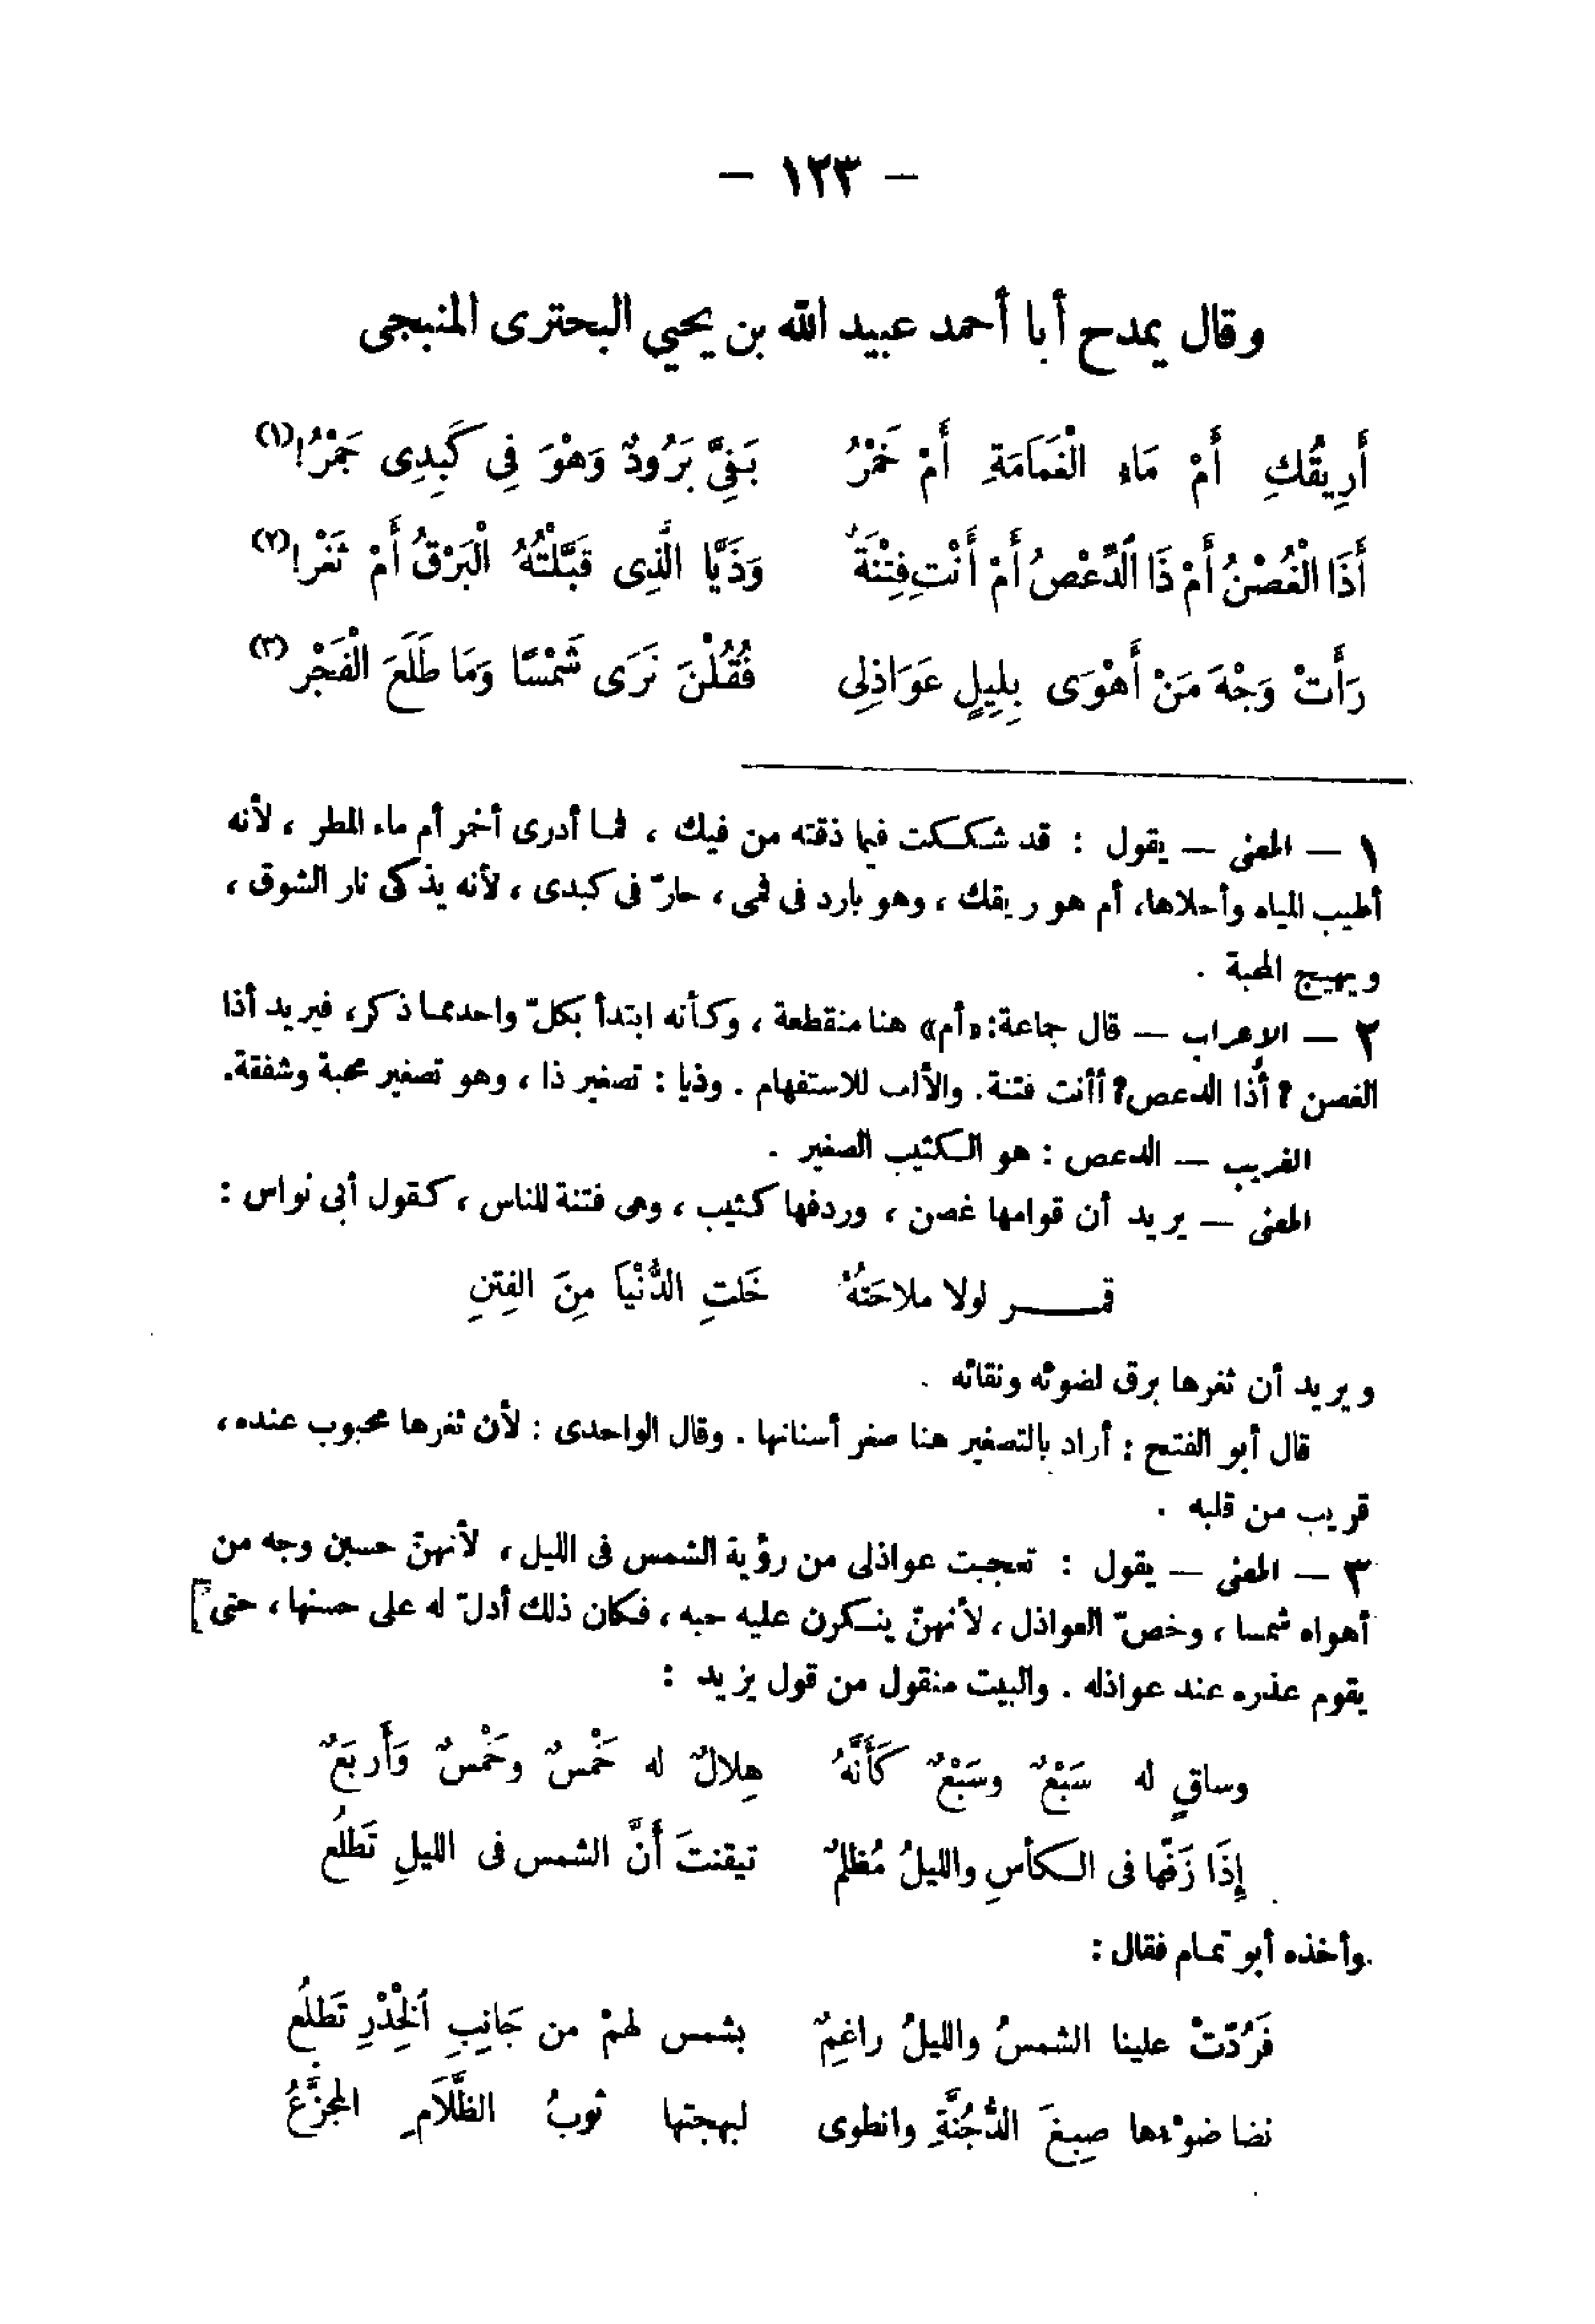 — ١٢٣ —
وقال يمدح أبا أحمد عبيد الله بن يحيي البحترى المنبجى
أَرِيقُكِ أَمْ مَاء الْغَمَامَةِ أَمْ خَمْرُ بَفِىَّ بَرُودٌ وَهْوَ فِى كَبِدِى جَمْرُ!(١)
أَذَا الْغُصْنُ أَمْ ذَا الدِّعْصُ أَمْ أَنْتِ فِتْنَةٌ وَذَيَّا الَّذِى قَبَّلْتُهُ الْبَرْقُ أَمْ ثَغْر!(٢)
رَأَتْ وَجْهَ مَنْ أَهْوَى بِلَيِلٍ عَوَاذِلِى فَقُلْنَ نَرَى شَمْسًا وَمَا طَلَعَ الْفَجْر(٣)
١ — المعنى — يقول : قد شككت فيما ذقته من فيك ، فما أدرى أخمر أم ماء المطر ، لأنه
أطيب المياه وأحلاها، أم هو ريقك ، وهو بارد فى فمى ، حارّ فى كبدى ، لأنه يذكى نار الشوق ،
ويهيج المحبة .
٢ — الإعراب — قال جماعة: «أم» هنا منقطعة ، وكأنه ابتدأ بكلّ واحد مما ذكر، فيريد أذا
الغصن ؟ أذا الدعص؟ أأنت فتنة. والألف للاستفهام . وذيا : تصغير ذا ، وهو تصغير محبة وشفقة.
الغريب — الدعص : هو الكثيب الصغير .
المعنى — يريد أن قوامها غصن ، وردفها كثيب ، وهى فتنة للناس ، كقول أبى نواس :
قمـــر لولا ملاحَتُهُ خَلتِ الدُّنْيَا مِنَ الفِتنِ
ويريد أن ثغرها برق لضوئه ونقائه .
قال أبو الفتح : أراد بالتصغير هنا صغر أسنانها . وقال الواحدى : لأن ثغرها محبوب عنده ،
قريب من قلبه .
٣ — المعنى — يقول : تعجبت عواذلى من رؤية الشمس فى الليل ، لأنهنّ حسبن وجه من
أهواه شمسا ، وخصّ العواذل ، لأنهنّ ينكرن عليه حبه ، فكان ذلك أدلّ له على حسنها ، حتى
يقوم عذره عند عواذله . والبيت منقول من قول يزيد :
وساقٍ له سَبْعٌ وسَبْعٌ كَأَنَّهُ هِلالٌ له خَمْسٌ وخَمْسٌ وَأَربَعٌ
إِذَا زَفَّها فى الكأسِ والليلُ مُظلمٌ تيقنتَ أَنَّ الشمس فى الليلِ تَطلُع
وأخذه أبو تمام فقال :
فَرُدّتْ علينا الشمسُ والليلُ راغمٌ بشمس لهمْ من جَانِبِ اَلْخِدْرِ تَطلُع
نضا ضوْءها صِبغَ الدُّجُنَّةِ وانطوى لبهجتها ثوبُ الظَّلَامِ المجزَّعُ